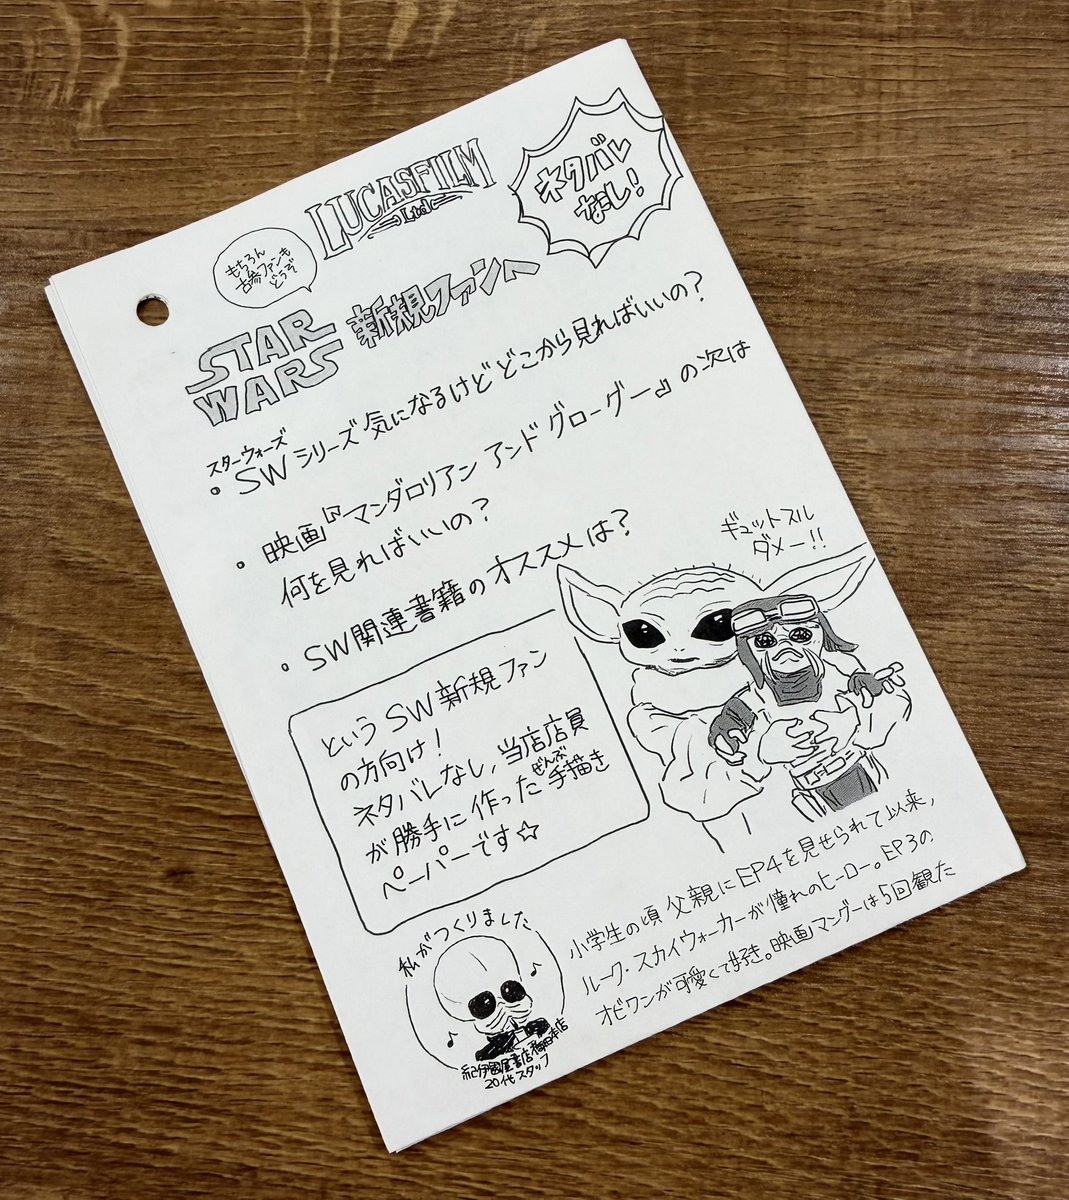 LUCASFILM
Ltd
ネタバレ
なし!
もちろん
古参ファンも
どうぞ
STAR
WARS
新規ファンへ
スターウォーズ
・SWシリーズ気になるけどどこから見ればいいの?
・映画『マンダロリアン アンド グローグー』の次は
何を見ればいいの?
・SW関連書籍のオススメは?
ギュットスル
ダメー!!
という SW新規ファン
の方向け!
ネタバレなし、当店店員
ぜんぶ
が勝手に作った手描き
ペーパーです☆
私がつくりました
紀伊國屋書店梅田本店
20代スタッフ
小学生の頃 父親にEP4を見せられて以来,
ルーク・スカイウォーカーが憧れのヒーロー。EP3の
オビワンが可愛くて好き。映画マングーは5回観た